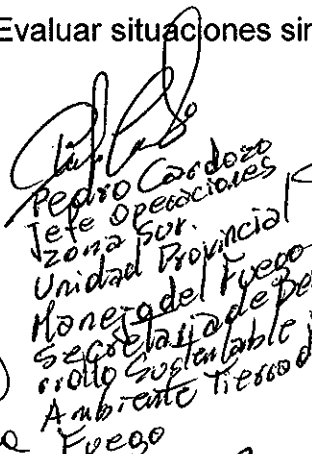 Evaluar situaciones sin
Pedro Cardozo
Jefe Operaciones
zona Sur.
Unidad Provincial
Manejo del Fuego
Secretaria de Desa
rrollo Sustentable y
Ambiente Tierra d
Fuego